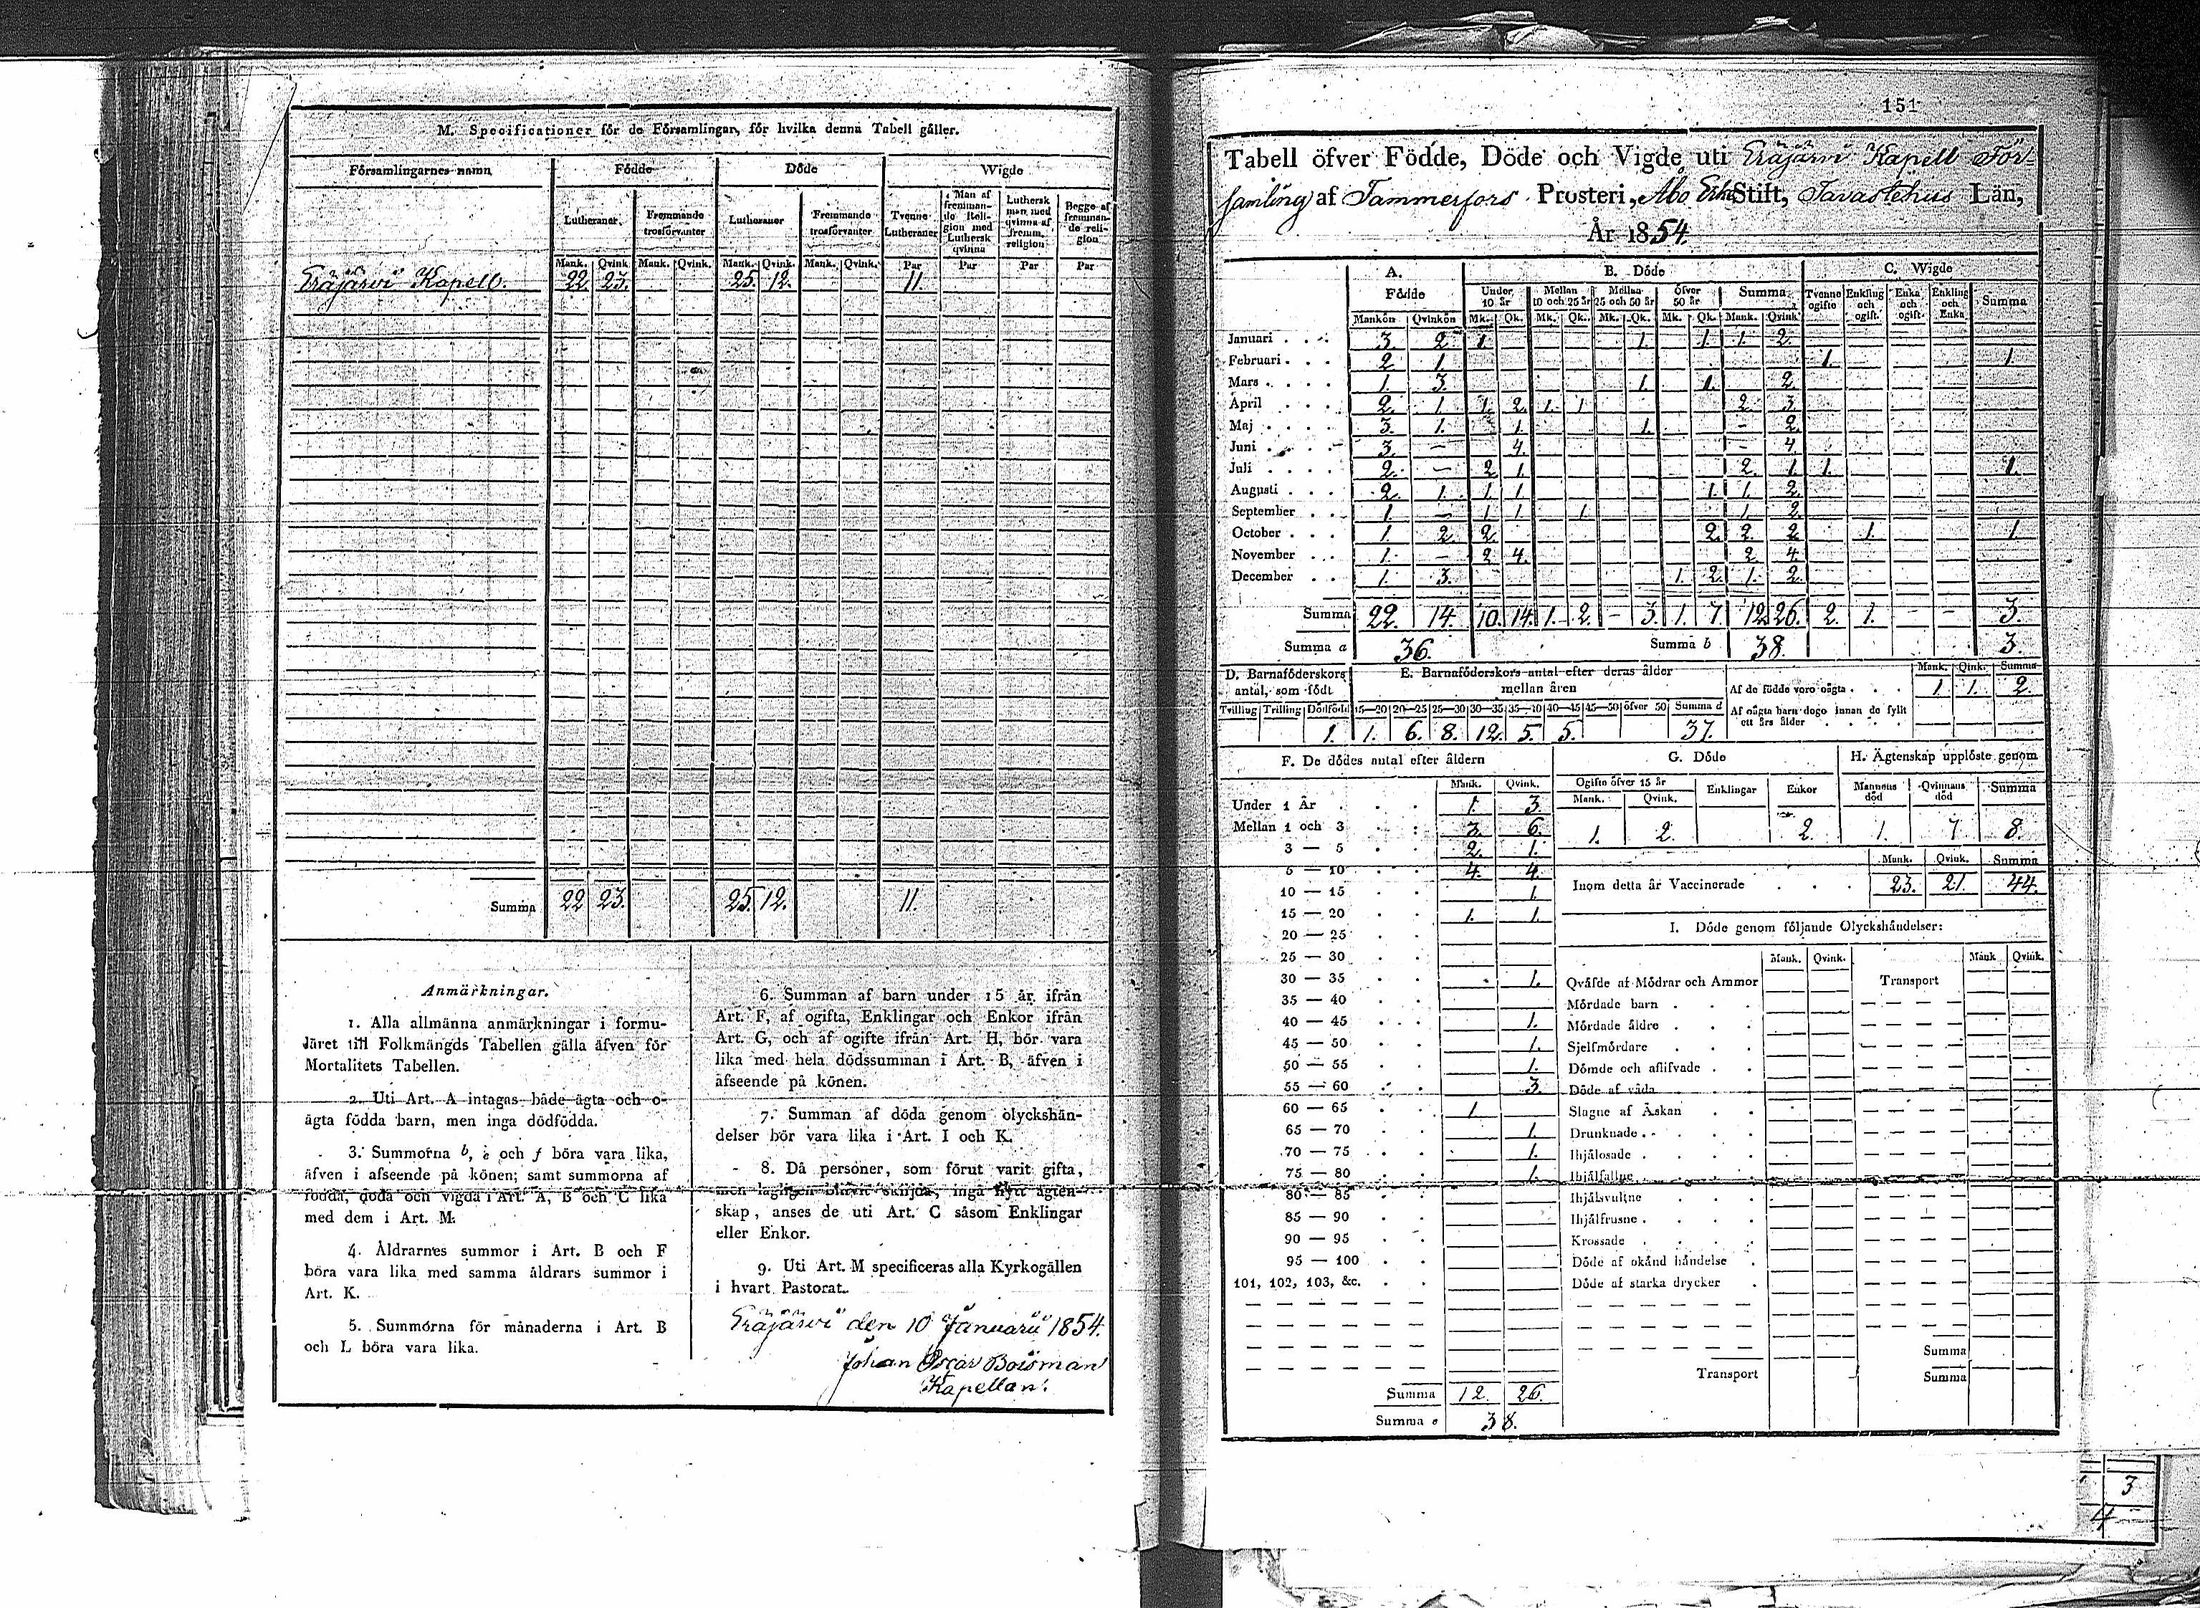 M. Specificationer för de Församlingar, för hvilka denna Tabell gäller.
Församlingarnes namn
Födde
Döde
Wigde
Lutheraner
Fremmande trosförvanter
Lutheraner
Fremmande trosförvanter
Tvenne Lutheraner
Man af fremmande Religion med Luthersk qvinna
Luthersk man med qvinna af fremm. religion
Begge af fremmande religion
Mank. Qvink. Mank. Qvink. Mank. Qvink. Mank. Qvink. Par Par Par Par
Eräjärvi Kapell. 22. 23. 25. 12. 11.
Summa 22 23. 25. 12. 11.
Anmärkningar.
1. Alla allmänna anmärkningar i formu-
läret till Folkmängds Tabellen gälla äfven för
Mortalitets Tabellen.
2. Uti Art. A intagas både ägta och o-
ägta födda barn, men inga dödfödda.
3. Summorna b, e och f böra vara lika,
äfven i afseende på könen; samt summorna af
födda, döda och vigda i Art. A, B och C lika
med dem i Art. M.
4. Åldrarnes summor i Art. B och F
böra vara lika med samma åldrars summor i
Art. K.
5. Summorna för månaderna i Art. B
och L böra vara lika.
6. Summan af barn under 15 år, ifrån
Art. F, af ogifta, Enklingar och Enkor ifrån
Art. G, och af ogifte ifrån Art. H, bör vara
lika med hela dödssumman i Art. B, äfven i
afseende på könen.
7. Summan af döda genom olyckshän-
delser bör vara lika i Art. I och K.
8. Då personer, som förut varit gifta,
men lagligen blifvit skiljda, ingå nytt ägten-
skap, anses de uti Art. C såsom Enklingar
eller Enkor.
9. Uti Art. M specificeras alla Kyrkogällen
i hvart Pastorat.
Eräjärvi den 10 Januarii 1854.
Johan Oscar Boisman
Kapellan.
151
Tabell öfver Födde, Döde och Vigde uti Eräjärvi Kapell För-
samling af Tammerfors Prosteri, Åbo Erke Stift, Tavastehus Län,
År 1854.
A. Födde
B. Döde
C. Wigde
Under 10 år
Mellan 10 och 25 år
Mellan 25 och 50 år
Öfver 50 år
Summa
Tvenne ogifte
Enkling och ogift
Enka och ogift
Enkling och Enka
Summa
Mankön Qvinkön Mk. Qk. Mk. Qk. Mk. Qk. Mk. Qk. Mank. Qvink.
Januari 3. 2. 1. 1. 1. 1. 2.
Februari 2. 1. 1. 1.
Mars 1. 3. 1. 1. 2.
April 2. 1. 1. 2. 1. 1 2. 3.
Maj 3. 1. 1. 1. - 2.
Juni 3. - 4. - 4.
Juli 2. - 2. 1. 2. 1. 1. 1.
Augusti 2. 1. 1. 1 1. 1. 2.
September 1. - 1. 1. 1 1. 2.
October 1. 2. 2. 2. 2. 2. 1. 1.
November 1. - 2 4. 2 4.
December 1. 3. 1. 2. 1. 2.
Summa 22. 14. 10. 14. 1. 2. - 3. 1. 7. 12. 26. 2. 1. - - 3.
Summa a 36. Summa b 38. 3.
D. Barnaföderskors antal, som födt
E. Barnaföderskors antal efter deras ålder mellan åren
Tvilling Trilling Dödfödd 15—20 20—25 25—30 30—35 35—40 40—45 45—50 öfver 50 Summa d
1. 1. 6. 8. 12. 5. 5. 37.
Mank. Qvink. Summa
Af de födde voro oägta 1 1. 2.
Af oägta barn dogo innan de fyllt
ett års ålder
F. De dödes antal efter åldern
Mank. Qvink.
Under 1 År 1. 3.
Mellan 1 och 3 3. 6.
3 — 5 2. 1.
5 — 10 4. 4.
10 — 15 1.
15 — 20 1. 1.
20 — 25
25 — 30
30 — 35 1.
35 — 40
40 — 45 1.
45 — 50 1.
50 — 55 1.
55 — 60 3.
60 — 65 1
65 — 70 1.
70 — 75 1.
75 — 80 1.
80 — 85
85 — 90
90 — 95
95 — 100
101, 102, 103, &c.
Summa 12. 26.
Summa e 38.
G. Döde
Ogifte öfver 15 år
Mank. Qvink. Enklingar Enkor
1. 2. 2.
H. Ägtenskap upplöste genom
Mannens död Qvinnans död Summa
1. 7 8.
Mank. Qvink. Summa
Inom detta år Vaccinerade 23. 21. 44.
I. Döde genom följande Olyckshändelser:
Mank. Qvink. Mank Qvink.
Qväfde af Mödrar och Ammor Transport
Mördade barn
Mördade äldre
Sjelfmördare
Dömde och aflifvade
Döde af våda
Slagne af Åskan
Drunknade
Ihjälosade
Ihjälfallne
Ihjälsvultne
Ihjälfrusne
Krossade
Döde af okänd händelse
Döde af starka drycker
Summa
Transport Summa
3
4